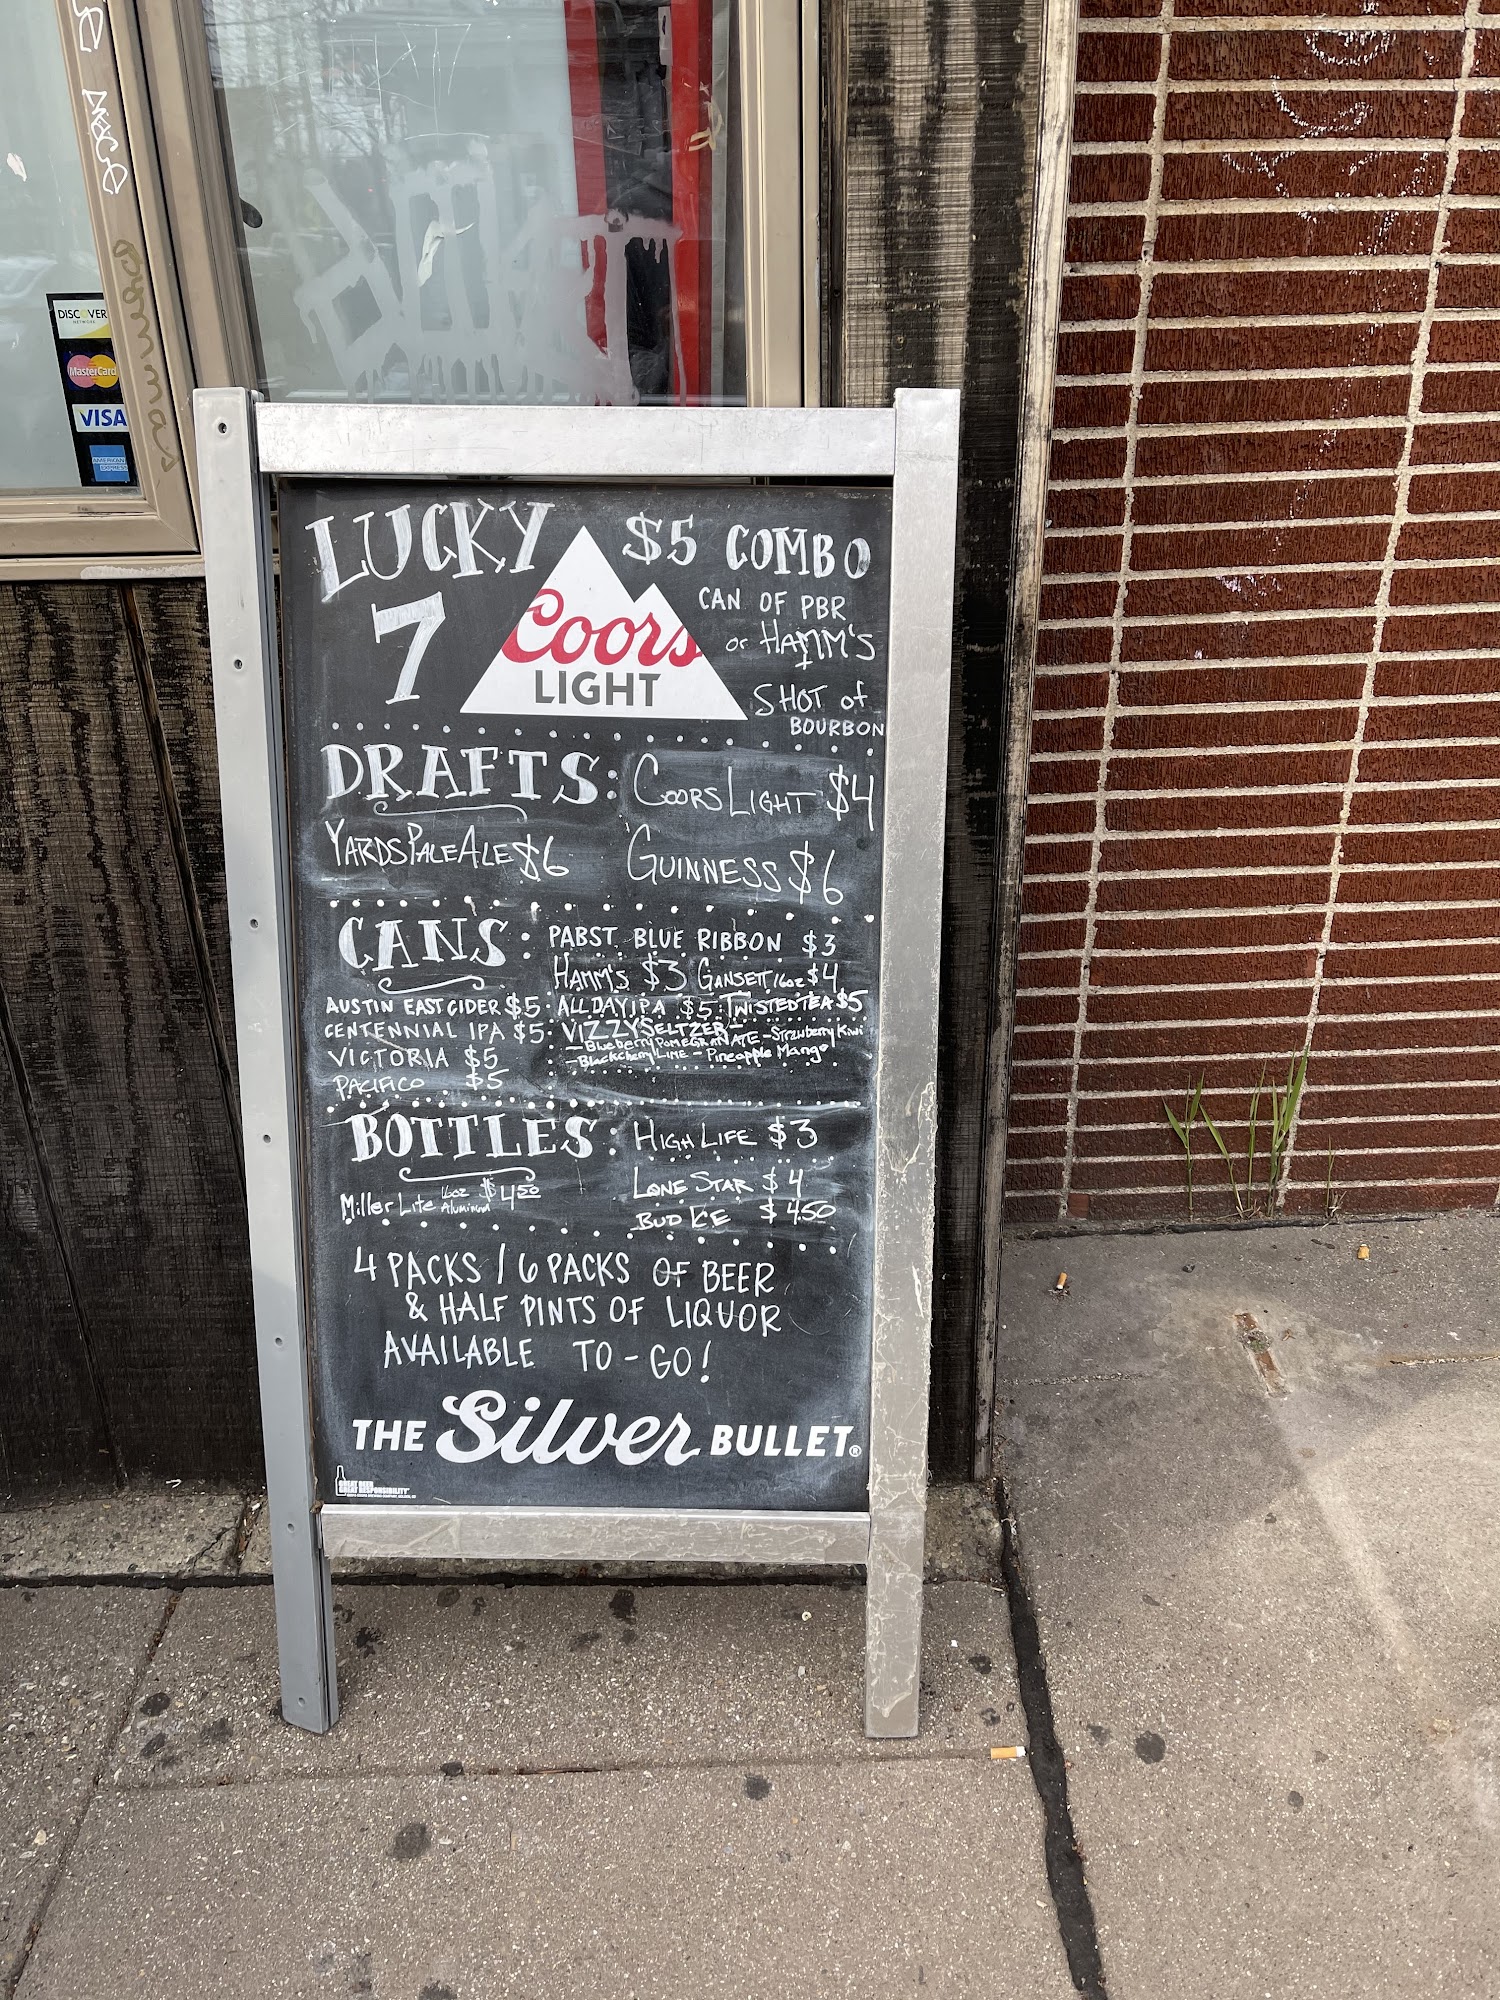 DISCOVER
NETWORK
MasterCard
VISA
AMERICAN
EXPRESS
LUCKY
7
Coors
LIGHT
$5 COMBO
CAN OF PBR
or HAMM'S
SHOT of
BOURBON
DRAFTS: COORS LIGHT $4
YARDS PALE ALE $6 GUINNESS $6
CANS: PABST BLUE RIBBON $3
HAMM'S $3 GANSETT 16oz $4
AUSTIN EAST CIDER $5 : ALL DAY IPA $5 : TWISTED TEA $5
CENTENNIAL IPA $5 : VIZZY SELTZER -
- Blueberry POMEGRANATE - Strawberry Kiwi
- Black Cherry LIME - Pineapple Mango
VICTORIA $5
PACIFICO $5
BOTTLES: HIGH LIFE $3
Miller Lite 16oz Aluminum $4.50
LONE STAR $4
BUD ICE $4.50
4 PACKS / 6 PACKS OF BEER
& HALF PINTS OF LIQUOR
AVAILABLE TO-GO!
THE Silver BULLET®
GREAT BEER
GREAT RESPONSIBILITY